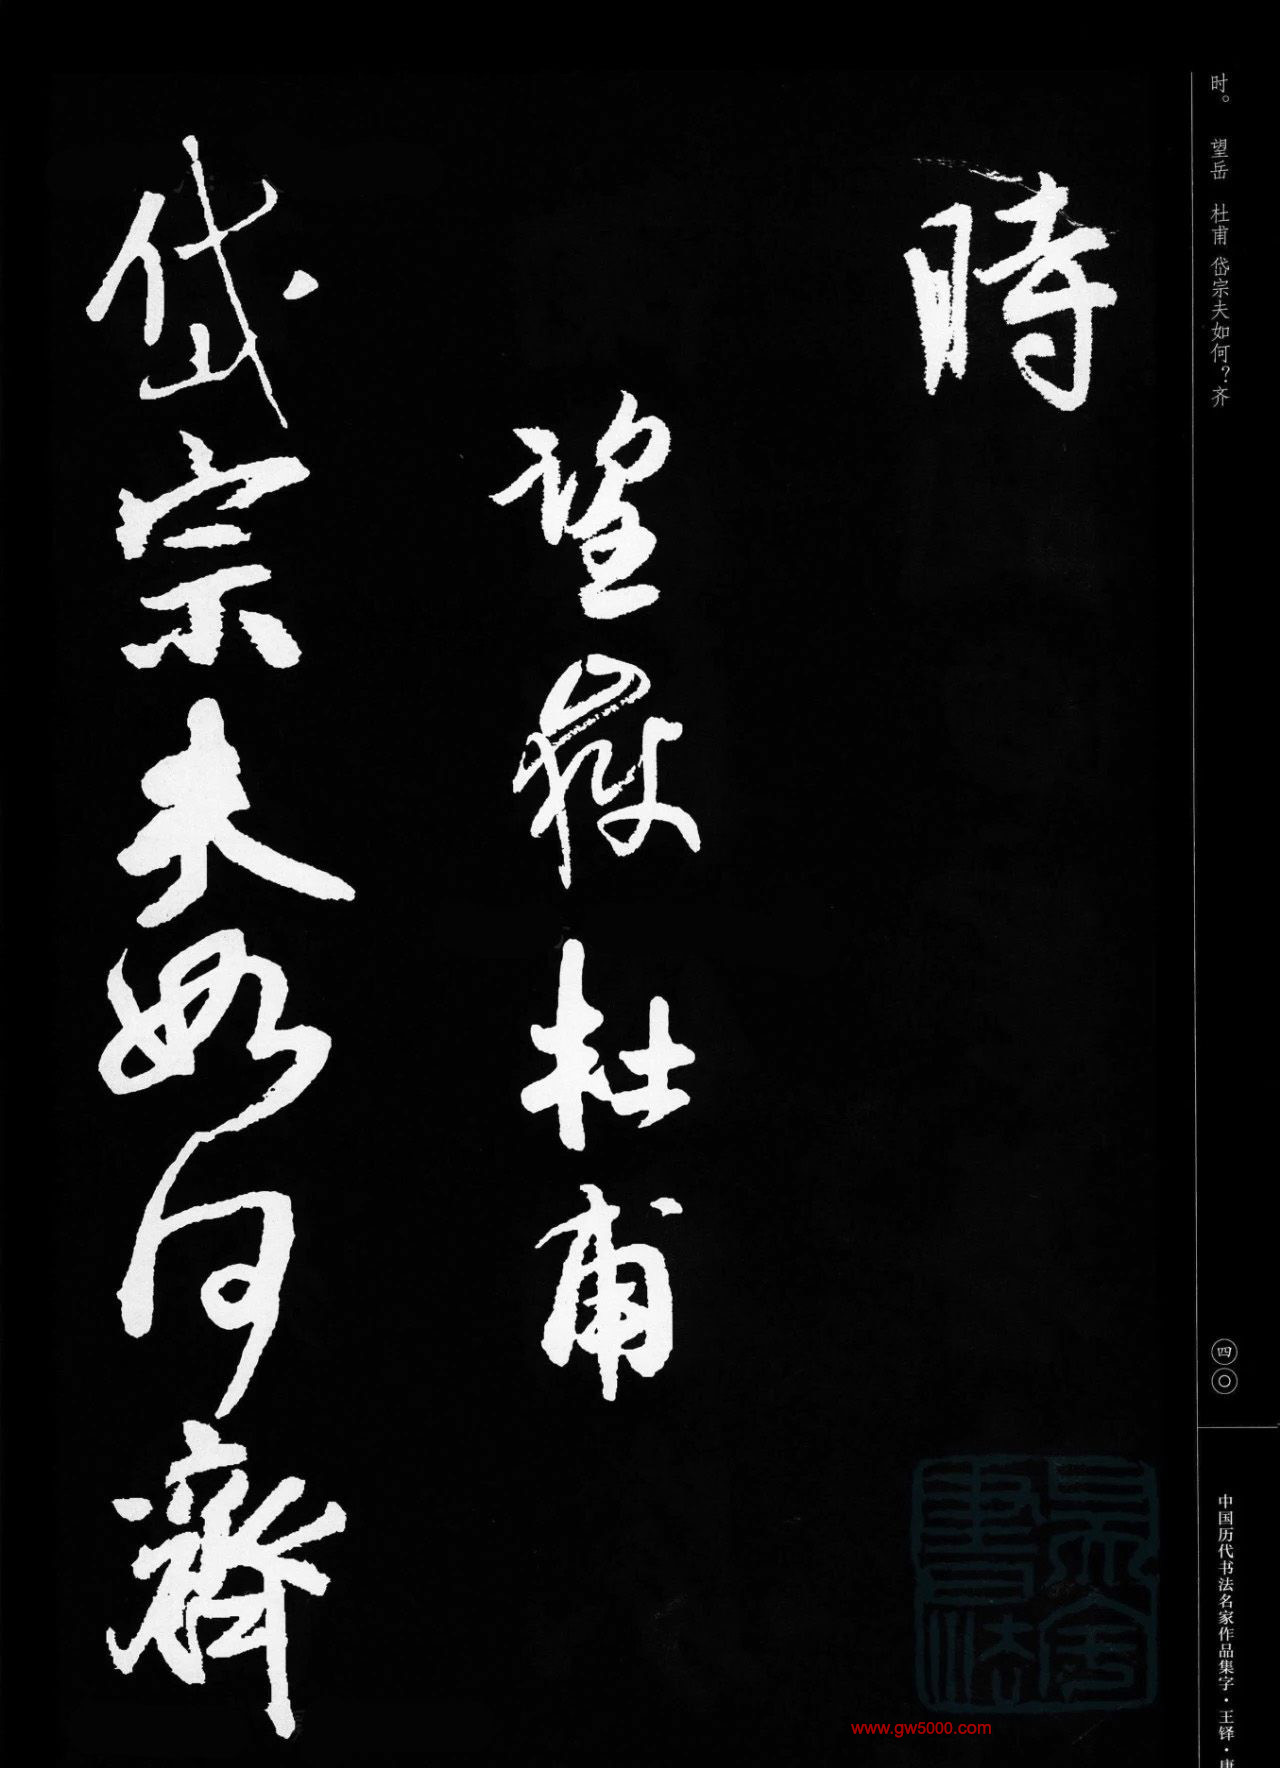 時
望嶽杜甫
岱宗夫如何齊
时。 望岳 杜甫 岱宗夫如何？齐
四〇
中国历代书法名家作品集字・王铎・唐
書法
www.gw5000.com